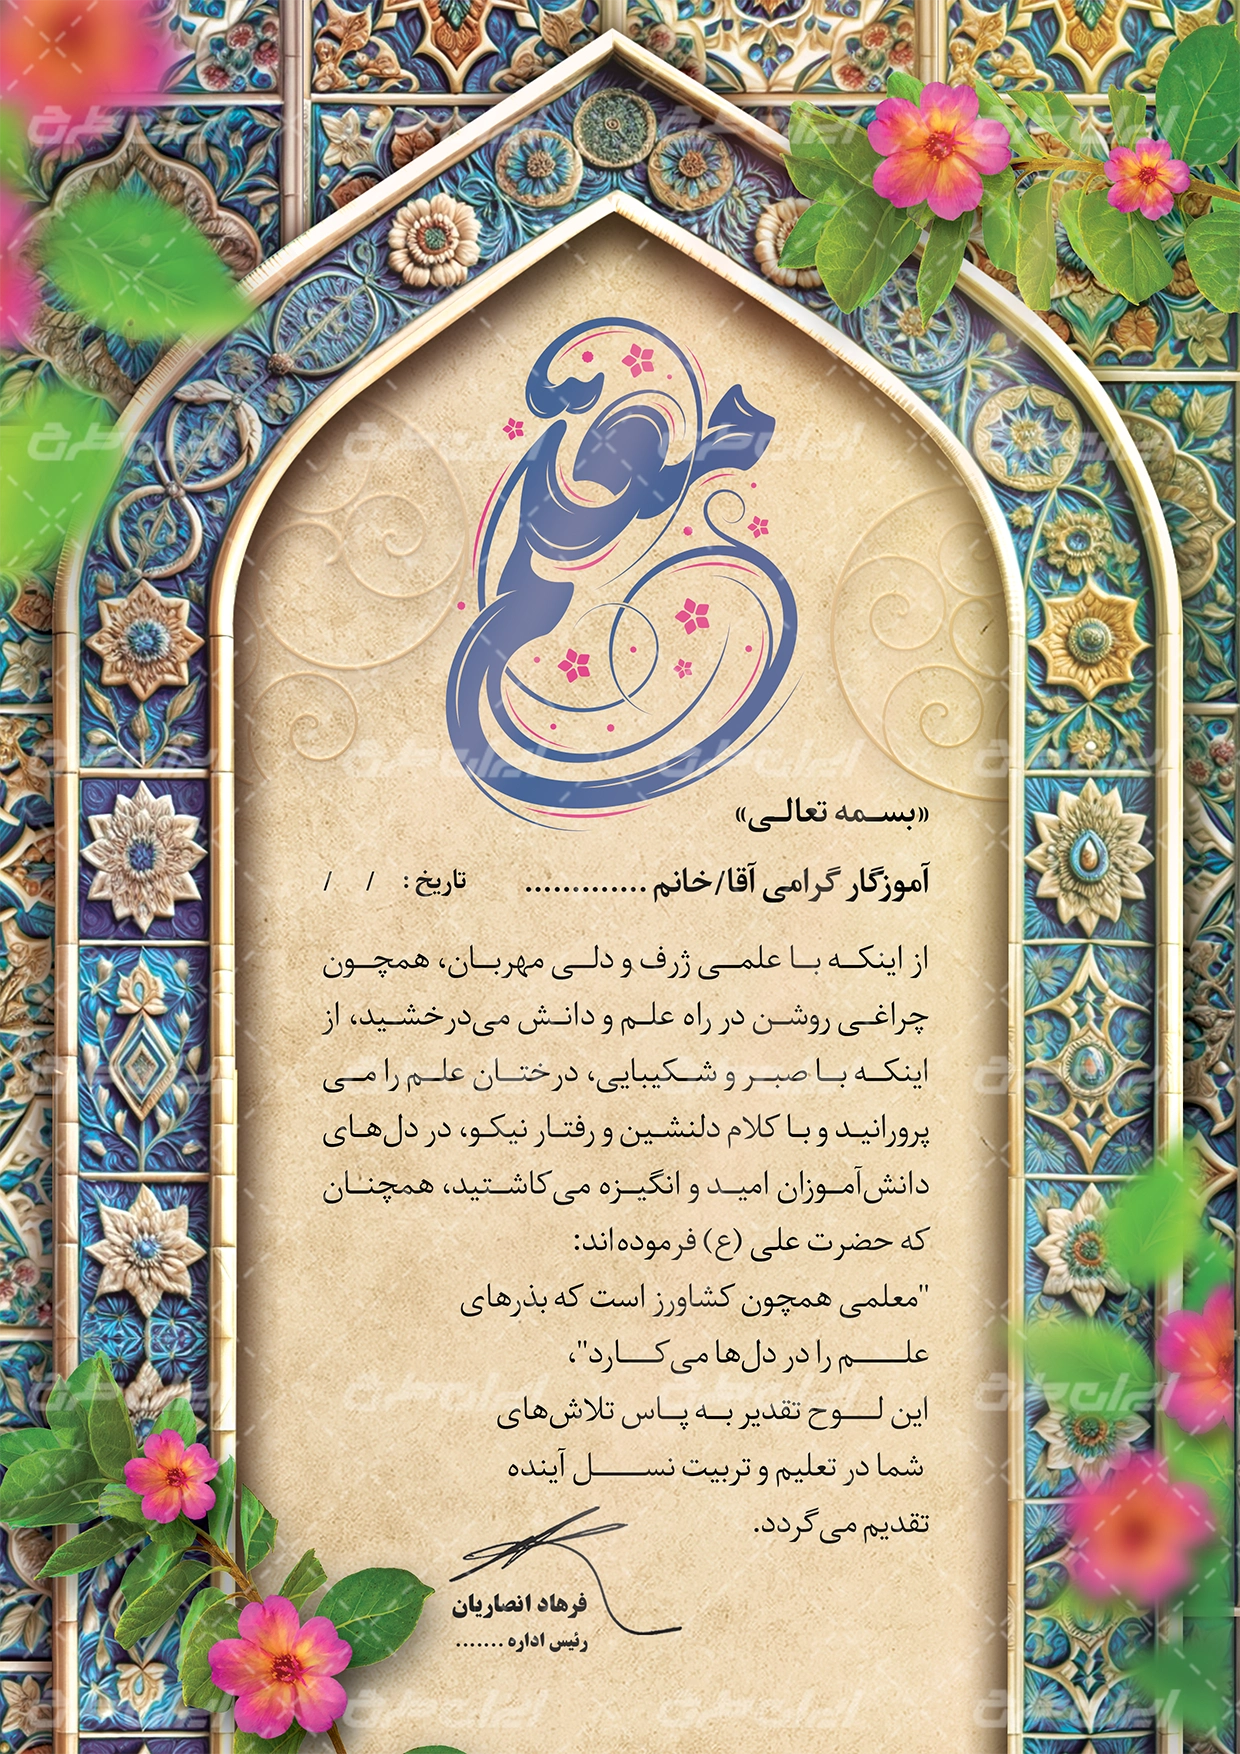 معلم
«بسمه تعالی»
آموزگار گرامی آقا/خانم ............. تاریخ: / /
از اینکه با علمی ژرف و دلی مهربان، همچون
چراغی روشن در راه علم و دانش می‌درخشید، از
اینکه با صبر و شکیبایی، درختان علم را می
پرورانید و با کلام دلنشین و رفتار نیکو، در دل‌های
دانش‌آموزان امید و انگیزه می‌کاشتید، همچنان
که حضرت علی (ع) فرموده‌اند:
"معلمی همچون کشاورز است که بذرهای
علم را در دل‌ها می‌کارد"،
این لوح تقدیر به پاس تلاش‌های
شما در تعلیم و تربیت نسل آینده
تقدیم می‌گردد.
فرهاد انصاریان
رئیس اداره .......
ایران طرح